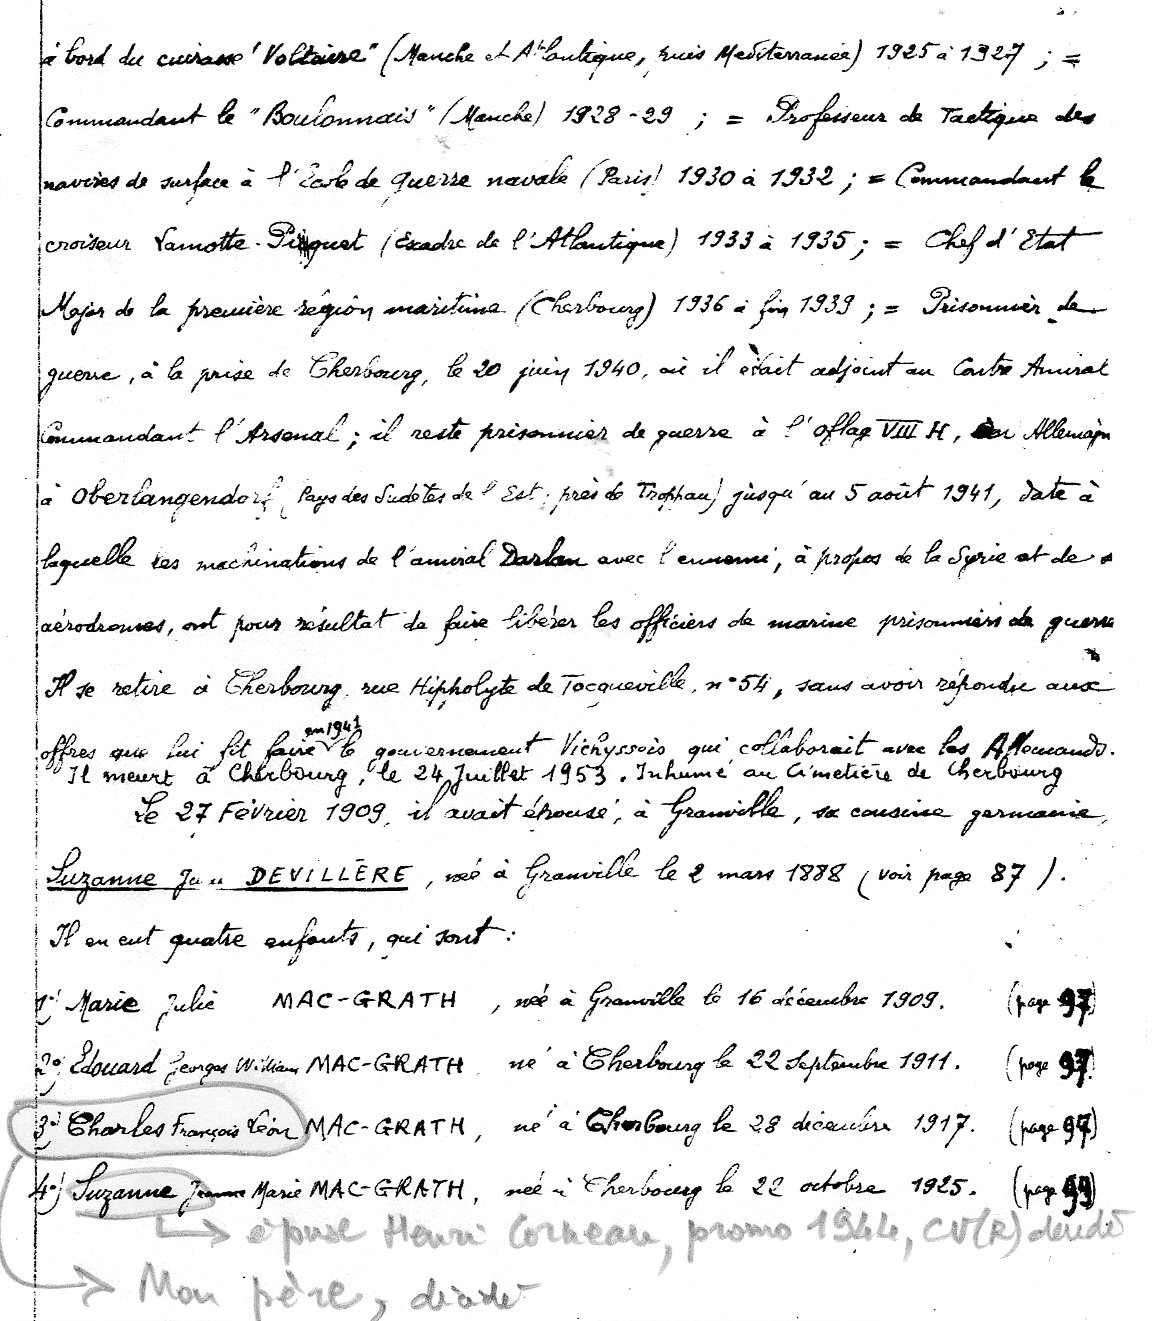 à bord du cuirassé "Voltaire" (Manche et Atlantique, puis Mediterranée) 1925 à 1927 ; =
Commandant le "Boulonnais" (Manche) 1928-29 ; = Professeur de Tactique des
navires de surface à l'École de guerre navale (Paris) 1930 à 1932 ; = Commandant le
croiseur Lamotte-Picquet (Escadre de l'Atlantique) 1933 à 1935 ; = Chef d'Etat
Major de la première région maritime (Cherbourg) 1936 à fin 1939 ; = Prisonnier de
guerre, à la prise de Cherbourg, le 20 juin 1940, où il était adjoint au Contre Amiral
Commandant l'Arsenal ; il reste prisonnier de guerre à l'oflag VIII H, en Allemagn
à Oberlangendorf (Pays des Sudètes de l'Est, près de Troppau) jusqu'au 5 août 1941, date à
laquelle les machinations de l'amiral Darlan avec l'ennemi, à propos de la Syrie et de s
aérodromes, ont pour résultat de faire libérer les officiers de marine prisonniers de guerre
Il se retire à Cherbourg, rue Hippholyte de Tocqueville, n° 54, sans avoir répondu aux
offres que lui fit faire en 1941 le gouvernement Vichyssois qui collaborait avec les Allemands.
Il meurt à Cherbourg, le 24 Juillet 1953. Inhumé au Cimetière de Cherbourg
Le 27 Février 1909, il avait épousé, à Granville, sa cousine germaine,
Suzanne DEVILLÈRE, née à Granville le 2 mars 1888 (voir page 87).
Il en eut quatre enfants, qui sont :
1°) Marie Julie MAC-GRATH, née à Granville le 16 décembre 1909. (page 97)
2°) Edouard Georges William MAC-GRATH né à Cherbourg le 22 Septembre 1911. (page 97)
3°) Charles François Léon MAC-GRATH, né à Cherbourg le 28 décembre 1917. (page 97)
4°) Suzanne Jeanne Marie MAC-GRATH, née à Cherbourg le 22 octobre 1925. (page 99)
épouse Henri Corneau, promo 1944, CV(R) décédé
Mon père, décédé